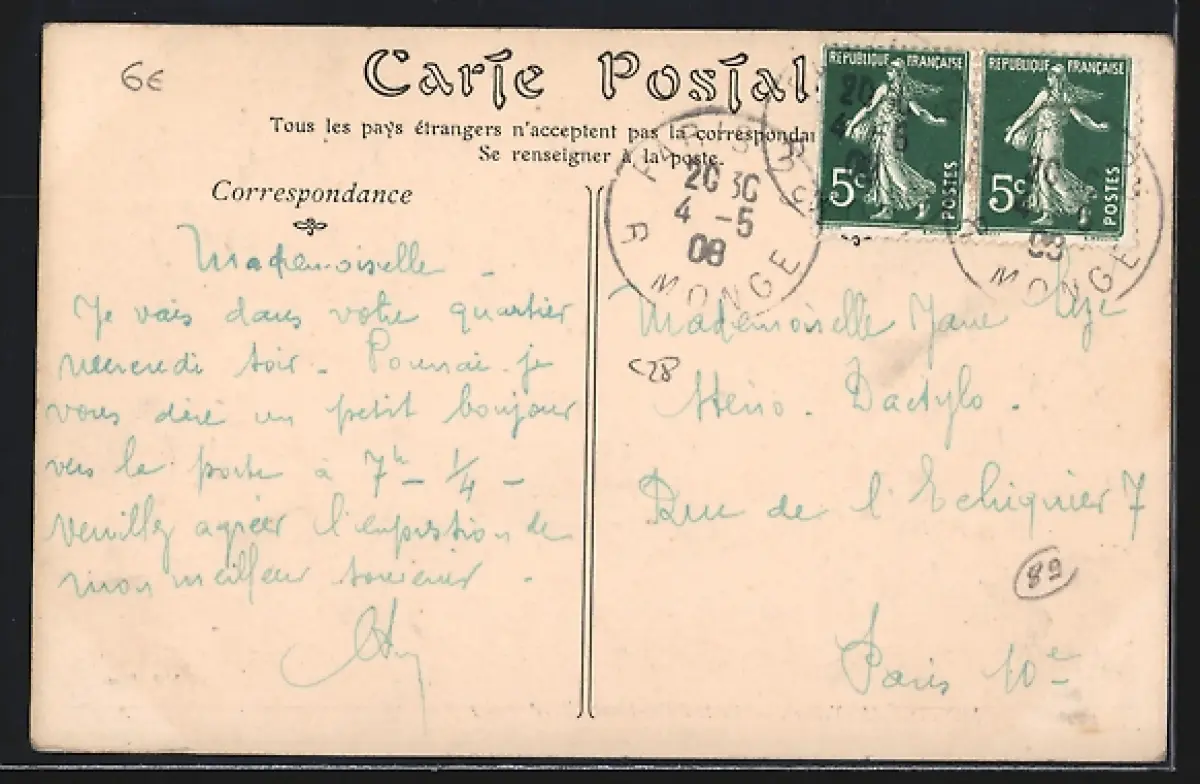 6€
Carte Postal
Tous les pays étrangers n'acceptent pas la correspondan
Se renseigner à la poste.
REPUBLIQUE FRANÇAISE
5c
POSTES
REPUBLIQUE FRANÇAISE
5c
POSTES
PARIS
20 30
4 -5
08
R. MONGE
Correspondance
Mademoiselle -
Je vais dans votre quartier
mercredi soir - Pourrai-je
vous dire un petit bonjour
vers la porte à 7h - 1/4 -
Veuillez agréer l'expression de
mon meilleur souvenir.
Mademoiselle Jane
Sténo. Dactylo.
Rue de l'Echiquier 7
Paris 10e
C28
89